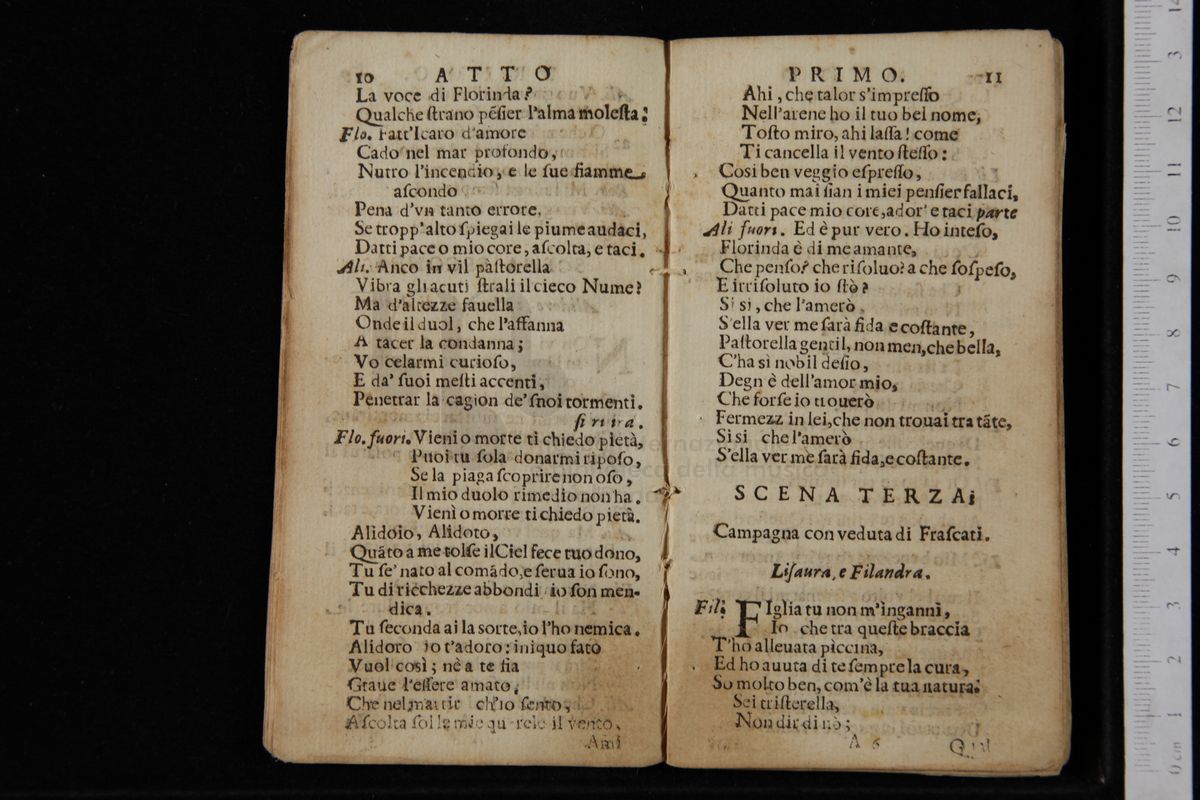 10 ATTO
La voce di Florinda?
Qualche ſtrano pẽſier l'alma moleſta:
Flo. Fatt'Icaro d'amore
Cado nel mar profondo,
Nutro l'incendio, e le ſue fiamme
aſcondo
Pena d'vn tanto errore.
Se tropp'alto ſpiegai le piume audaci,
Datti pace o mio core, aſcolta, e taci.
Ali. Anco in vil pàſtorella
Vibra gli acuti ſtrali il cieco Nume?
Ma d'altezze fauella
Onde il duol, che l'affanna
A tacer la condanna;
Vo celarmi curioſo,
E da' ſuoi meſti accenti,
Penetrar la cagion de' ſnoi tormenti.
ſi ritira.
Flo. fuori. Vieni o morte ti chiedo pietà,
Puoi tu ſola donarmi ripoſo,
Se la piaga ſcoprire non oſo,
Il mio duolo rimedio non ha.
Vieni o morre ti chiedo pietà.
Alidoio, Alidoto,
Quãto a me tolſe il Ciel fece tuo dono,
Tu ſe' nato al comãdo, e ſerua io ſono,
Tu di ricchezze abbondi io ſon men-
dica.
Tu ſeconda ai la sorte, io l'ho nemica.
Alidoro io t'adoro: iniquo fato
Vuol così; nè a te ſia
Graue l'eſſere amato.
Che nel martir ch'io ſento,
Aſcolta ſol le mie querele il vento.
PRIMO. 11
Ahi, che talor s'impreſſo
Nell'arene ho il tuo bel nome,
Toſto miro, ahi laſſa! come
Ti cancella il vento ſteſſo:
Coſi ben veggio eſpreſſo,
Quanto mai ſian i miei penſier fallaci,
Datti pace mio core, ador' e taci parte
Ali fuori. Ed è pur vero. Ho inteſo,
Florinda è di me amante,
Che penſo? che riſoluo? a che ſoſpeſo,
E irriſoluto io ſtò?
Si si, che l'amerò
S'ella ver me ſarà fida e coſtante,
Paſtorella gentil, non men, che bella,
C'ha sì nobil deſio,
Degn è dell'amor mio,
Che forſe io trouerò
Fermezz in lei, che non trouai tra tãte,
Si si che l'amerò
S'ella ver me ſarà fida, e coſtante.
SCENA TERZA;
Campagna con veduta di Fraſcati.
Liſaura, e Filandra.
Fil. FIglia tu non m'inganni,
Io che tra queſte braccia
T'ho alleuata pìccina,
Ed ho auuta di te ſempre la cura,
So molto ben, com'è la tua natura:
Sei triſterella,
Non dir di nò;
A 6